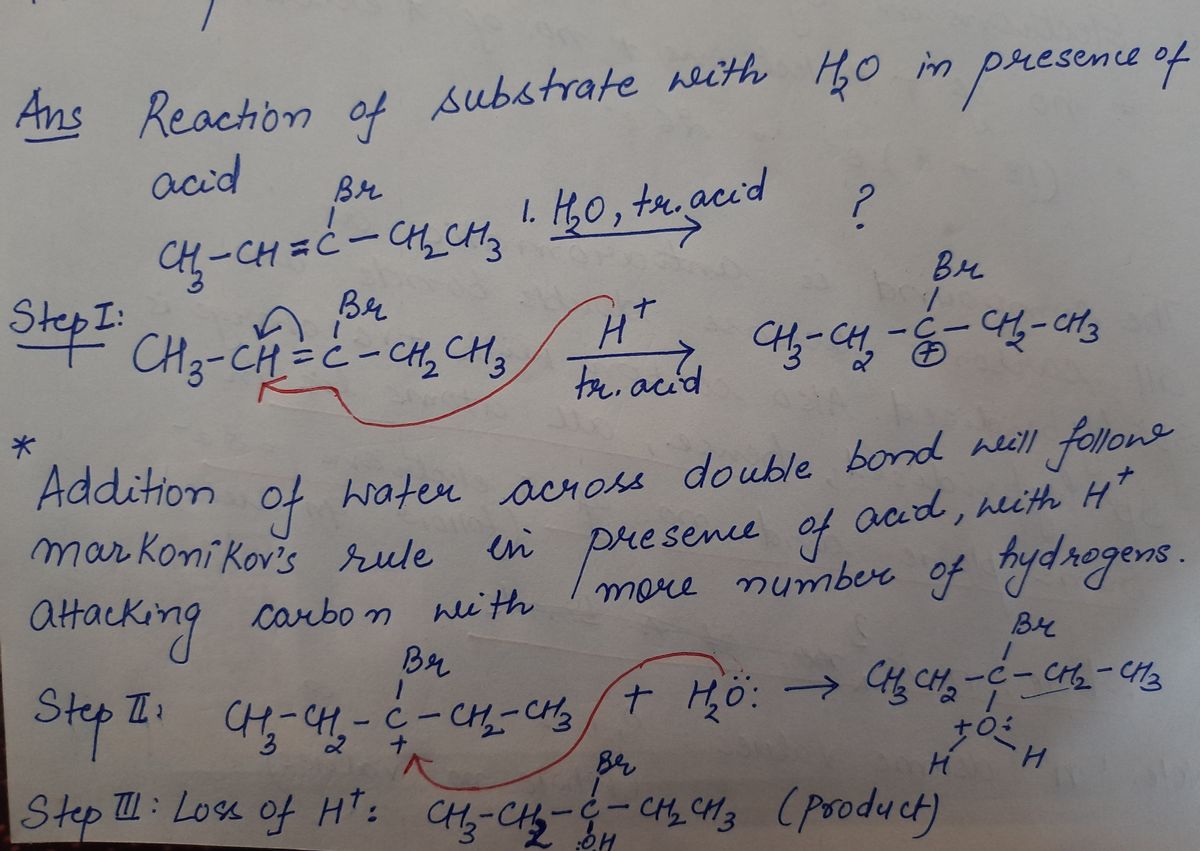 Ans Reaction of substrate with H₂O in presence of
acid
Br
CH₃-CH=C-CH₂CH₃ 1. H₂O, tr. acid ?
Step I:
Br
CH₃-CH=C-CH₂CH₃ H⁺ tr. acid
Br
CH₃-CH₂-C-CH₂-CH₃
⊕
*
Addition of water across double bond will follow
markonikov's rule in presence of acid, with H⁺
attacking carbon with more number of hydrogens.
Br
Step II: CH₃-CH₂-C-CH₂-CH₃ + H₂Ö: → CH₃CH₂-C-CH₂-CH₃
+
Br
+O:
H H
Br
Step III: Loss of H⁺: CH₃-CH₂-C-CH₂CH₃ (Product)
:OH